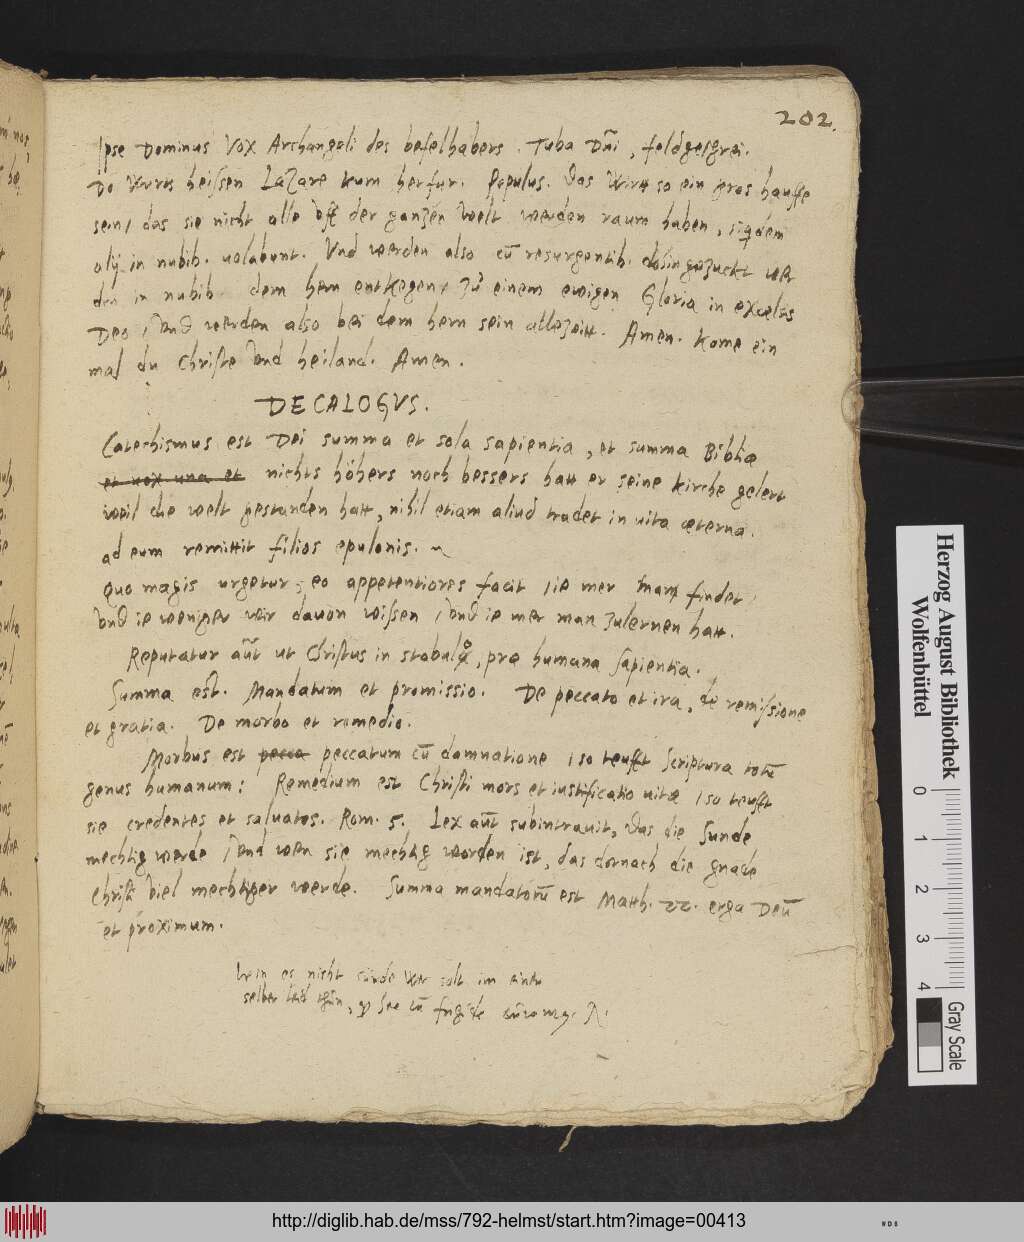 202.
Ipse Dominus Vox Archangeli des befelhabers. Tuba Dni, feldgeschrei.
Do wurts heissen Lazare kum herfur. Populus. Das wirtt so ein gros hauffe
sein, das sie nicht alle uff der ganzen welt werden raum haben,
alij in nubib. uolabunt. Vnd werden also cū resurgentib. dohin gezuckt wer
den in nubib dem hern entkegen, zu einem ewigen Gloria in excelsis
Deo, vnd werden also bei dem hern sein allezeitt. Amen. Kome ein
mal du Christe vnd heiland. Amen.
DECALOGVS.
Catechismus est Dei summa et sola sapientia, et summa Bibliæ
et vox una et nichts höhers noch bessers hatt er seine kirche gelert
weil die welt gestanden hatt, nihil etiam aliud tradet in uita æterna.
ad eum remittit filios epulonis.
Quo magis urgetur, eo appetentiores facit, ie mer man findet,
vnd ie weniger wir dauon wissen, vnd ie mer man zulernen hatt.
Reputatur aūt ut Christus in stabulo, præ humana sapientia.
Summa est. Mandatum et promissio. De peccato et ira, de remissione
et gratia. De morbo et remedio.
Morbus est pecca peccatum cū damnatione, so teufft Scriptura totū
genus humanum: Remedium est Christi mors et iustificatio uitæ, so teufft
sie credentes et saluatos. Rom. 5. Lex aūt subintrauit, Das die Sunde
mechtig werde, vnd wen sie mechtig worden ist, das dornach die gnade
Christi viel mechtiger werde. Summa mandatorū est Matth. 22. erga Deū
et proximum.
Wen es nicht sunde wer solt im einer
selber leid thun,
Herzog August Bibliothek
Wolfenbüttel
0 1 2 3 4
Gray Scale
http://diglib.hab.de/mss/792-helmst/start.htm?image=00413